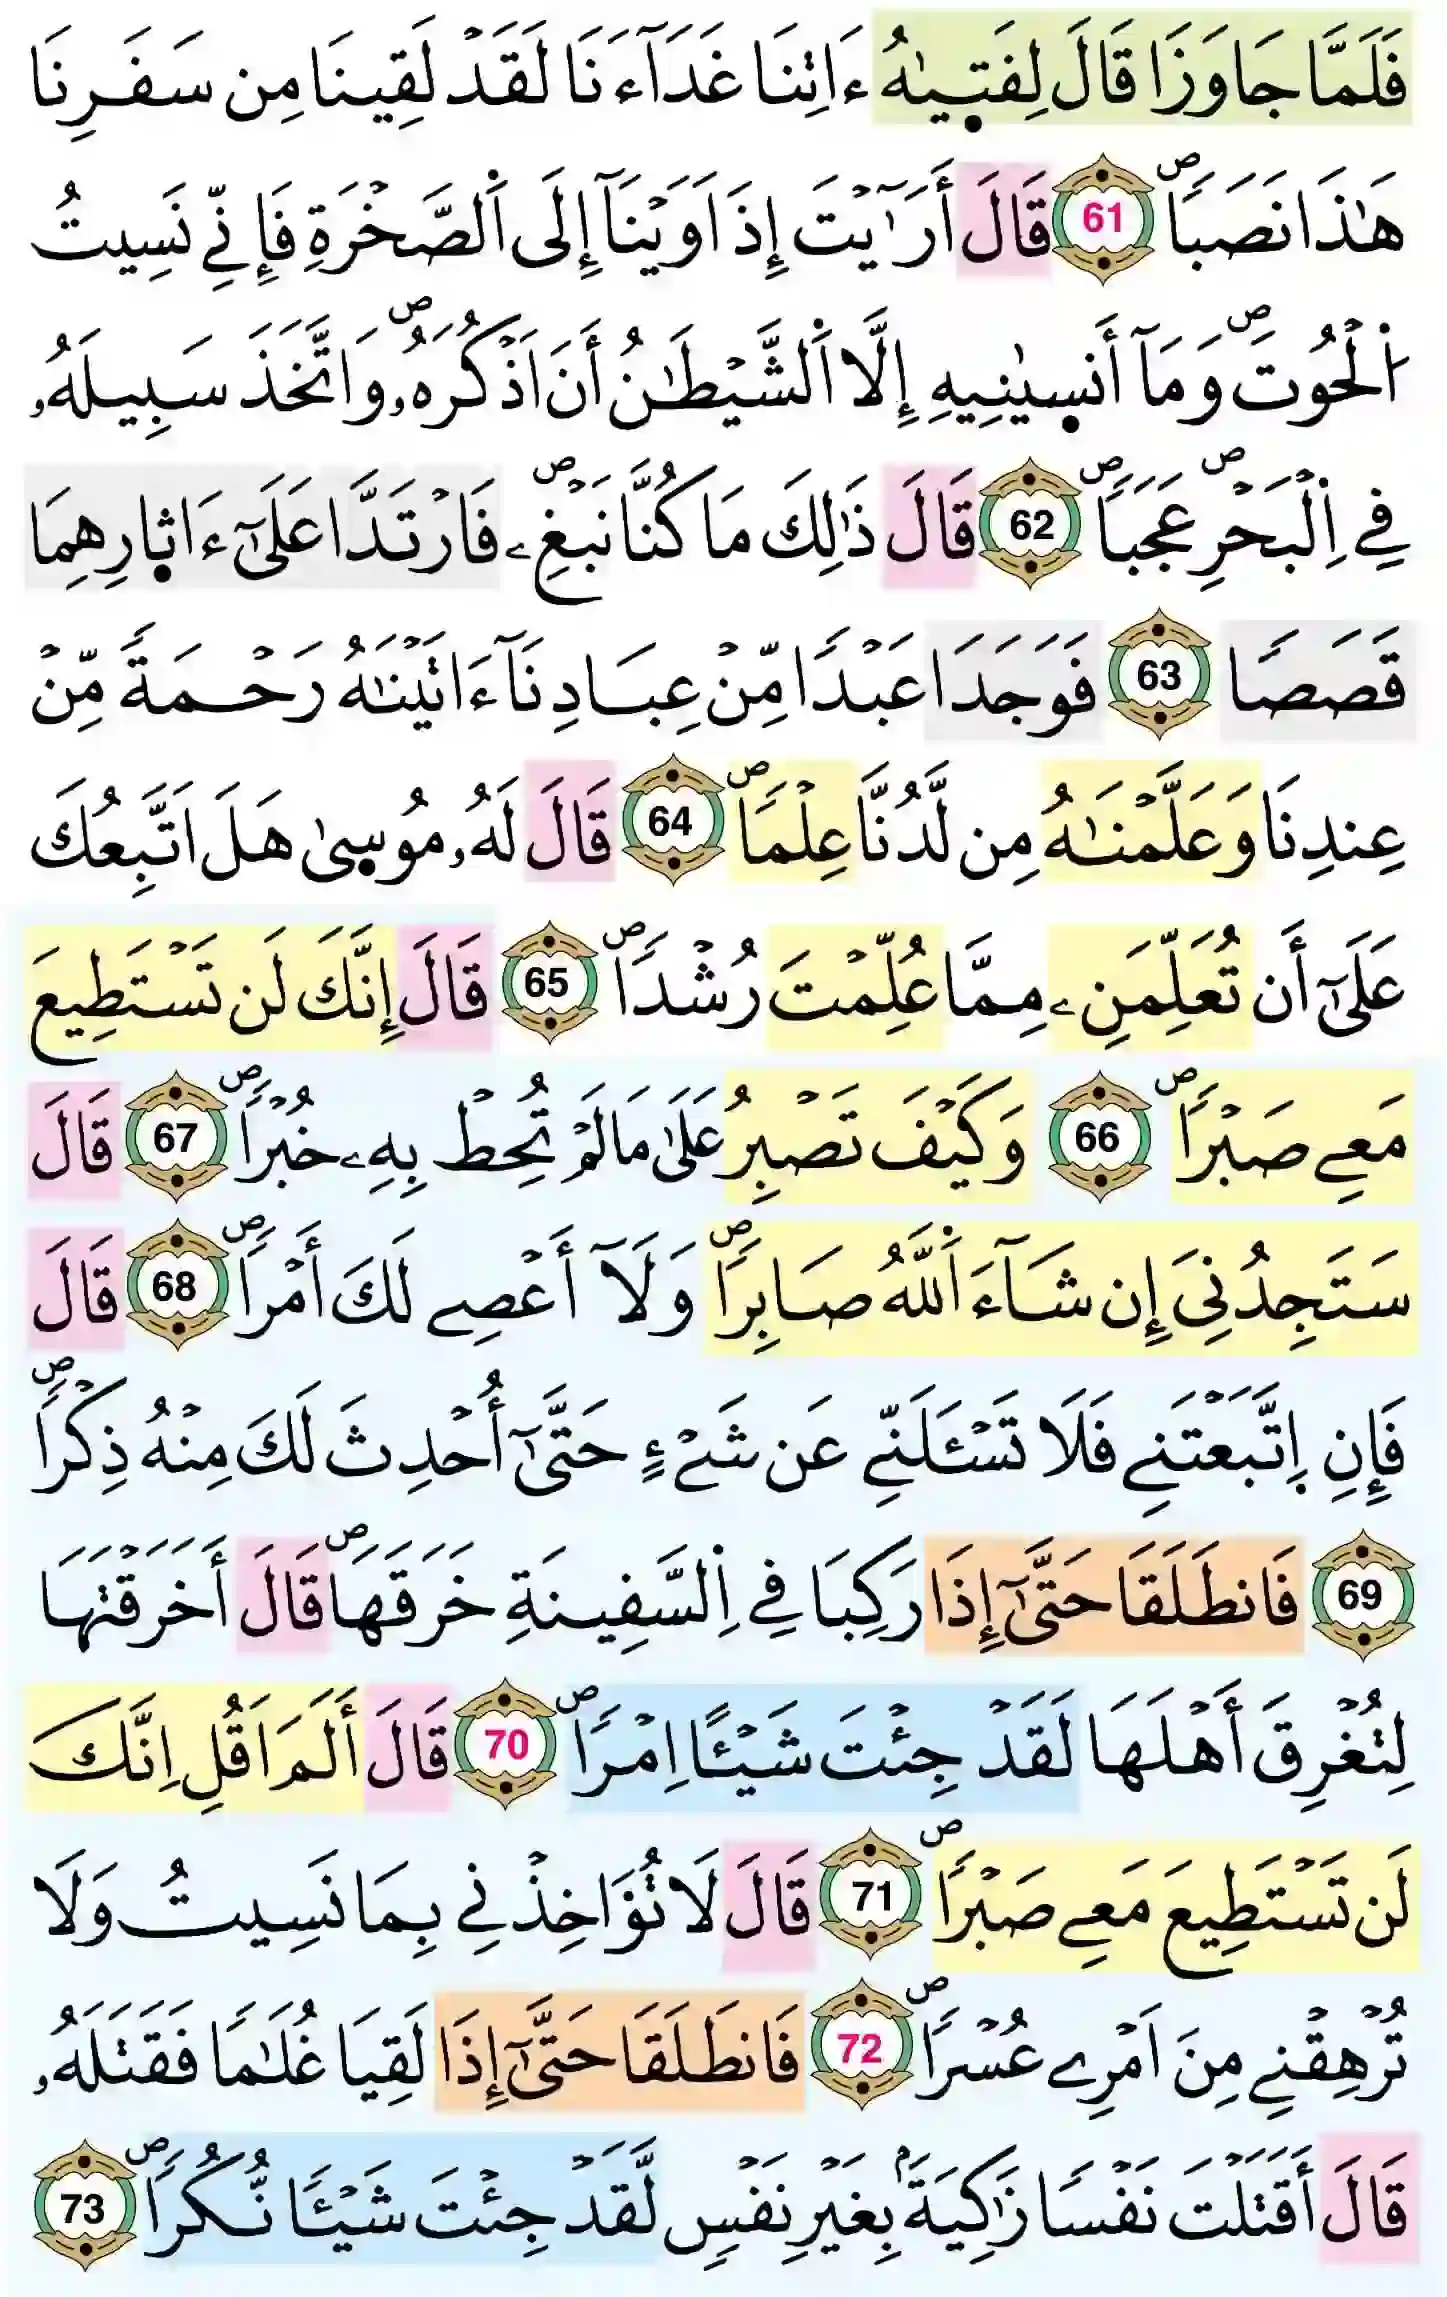 فَلَمَّا جَاوَزَا قَالَ لِفَتىٰهُ ءَاتِنَا غَدَآءَنَا لَقَدْ لَقِينَا مِن سَفَرِنَا
هَٰذَا نَصَباًۖ 61 قَالَ أَرَٰيْتَ إِذَ اَوَيْنَآ إِلَى اَ۬لصَّخْرَةِ فَإِنِّے نَسِيتُ
اُ۬لْحُوتَۖ وَمَآ أَنسىٰنِيهِ إِلَّا اَ۬لشَّيْطَٰنُ أَنَ اَذْكُرَهُۥۖ وَاتَّخَذَ سَبِيلَهُۥ
فِے اِ۬لْبَحْرِۖ عَجَباًۖ 62 قَالَ ذَٰلِكَ مَا كُنَّا نَبْغِۦۖ فَارْتَدَّا عَلَىٰٓ ءَاثٰارِهِمَا
قَصَصاً 63 فَوَجَدَا عَبْداً مِّنْ عِبَادِنَآ ءَاتَيْنَٰهُ رَحْمَةً مِّنْ
عِندِنَا وَعَلَّمْنَٰهُ مِن لَّدُنَّا عِلْماًۖ 64 قَالَ لَهُۥ مُوسىٰ هَلَ اَتَّبِعُكَ
عَلَىٰٓ أَن تُعَلِّمَنِۦ مِمَّا عُلِّمْتَ رُشْداًۖ 65 قَالَ إِنَّكَ لَن تَسْتَطِيعَ
مَعِے صَبْراًۖ 66 وَكَيْفَ تَصْبِرُ عَلَىٰ مَا لَمْ تُحِطْ بِهِۦ خُبْراًۖ 67 قَالَ
سَتَجِدُنِيَ إِن شَآءَ اَ۬للَّهُ صَابِراًۖ وَلَآ أَعْصِے لَكَ أَمْراًۖ 68 قَالَ
فَإِنِ اِ۪تَّبَعْتَنِے فَلَا تَسْـَٔلَنِّے عَن شَےْءٍ حَتَّىٰٓ أُحْدِثَ لَكَ مِنْهُ ذِكْراًۖ
69 فَانطَلَقَا حَتَّىٰٓ إِذَا رَكِبَا فِے اِ۬لسَّفِينَةِ خَرَقَهَاۖ قَالَ أَخَرَقْتَهَا
لِتُغْرِقَ أَهْلَهَا لَقَدْ جِئْتَ شَيْـٔاً اِمْراًۖ 70 قَالَ أَلَمَ اَقُلِ اِنَّكَ
لَن تَسْتَطِيعَ مَعِے صَبْراًۖ 71 قَالَ لَا تُؤَاخِذْنِے بِمَا نَسِيتُ وَلَا
تُرْهِقْنِے مِنَ اَمْرِے عُسْراًۖ 72 فَانطَلَقَا حَتَّىٰٓ إِذَا لَقِيَا غُلَٰماً فَقَتَلَهُۥ
قَالَ أَقَتَلْتَ نَفْساً زَٰكِيَةَۢ بِغَيْرِ نَفْسٍ لَّقَدْ جِئْتَ شَيْـٔاً نُّكُراًۖ 73